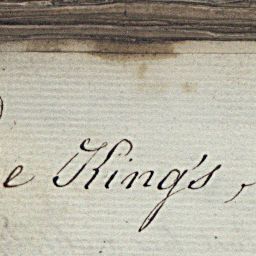 e King's,